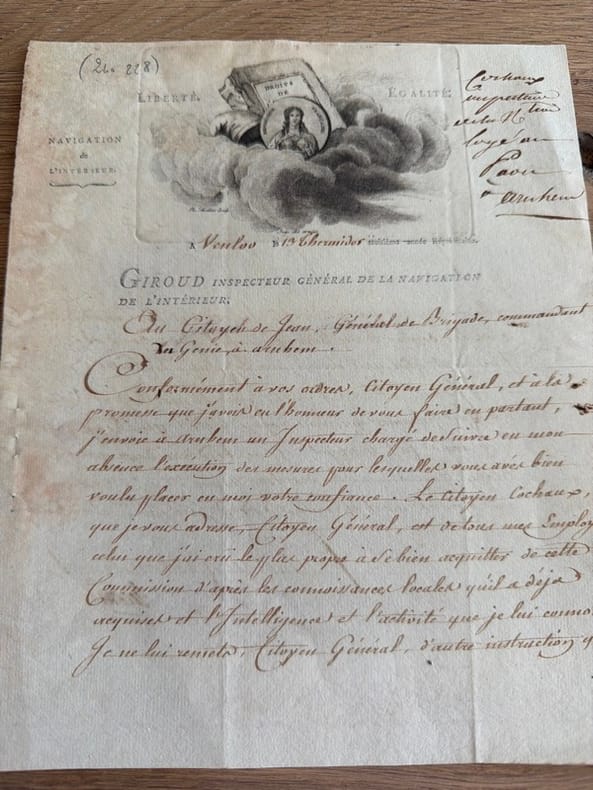 (21. 228)
LIBERTÉ,
DROITS
DE
ÉGALITÉ,
Cochaux
inspecteur
logé au
Paon
arnhem
NAVIGATION
de
L'INTÉRIEUR.
A Venloo le 13 Thermidor
GIROUD INSPECTEUR GÉNÉRAL DE LA NAVIGATION
DE L'INTÉRIEUR,
Au Citoyen de Jean, Général de Brigade, commandant
du Genie, à arnhem.
Conformément à vos ordres, Citoyen Général, et à la
promesse que j'avois eu l'honneur de vous faire en partant,
j'envoie à Arnhem un Inspecteur chargé de suivre en mon
absence l'exécution des mesures pour lesquelles vous avés bien
voulu placer en moi votre confiance. Le Citoyen Cochaux,
que je vous adresse, Citoyen Général, est de tous mes Employ
celui que j'ai crû le plus propre à se bien acquitter de cette
Commission d'après les connoissances locales qu'il a déja
acquises et l'Intelligence et l'activité que je lui conno
Je ne lui remets, Citoyen Général, d'autre instruction q